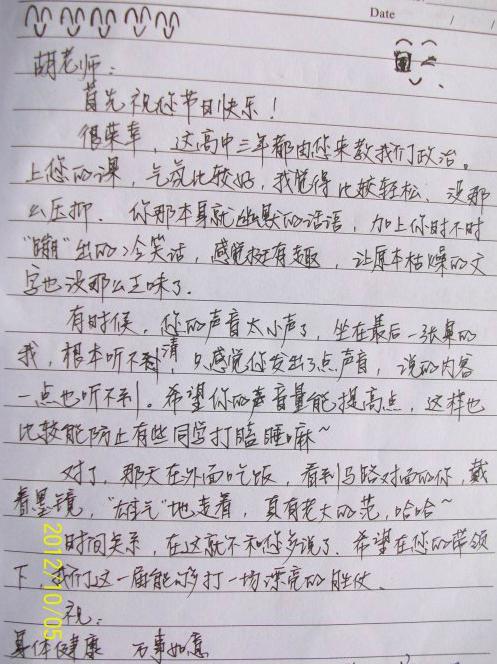 Date / /
胡老师:
首先祝您节日快乐!
很荣幸,这高中三年都由您来教我们政治。
上您的课,气氛比较好,我觉得比较轻松、没那
么压抑。你那本身就幽默的话语,加上你时不时
“蹦”出的冷笑话,感觉挺有趣,让原本枯燥的文
字也没那么乏味了。
有时候,您的声音太小声了,坐在最后一张桌的
我,根本听不清,只感觉您发出了点声音,说的内容
一点也听不到。希望你的声音量能提高点,这样也
比较能防止有些同学打瞌睡嘛~
对了,那天在外面吃饭,看到马路对面的你,戴
着墨镜,“雄气”地走着,真有老大的范,哈哈~
时间关系,在这就不和您多说了。希望在您的带领
下,我们这一届能够打一场漂亮的胜仗。
祝:
身体健康 万事如意
2012/10/05